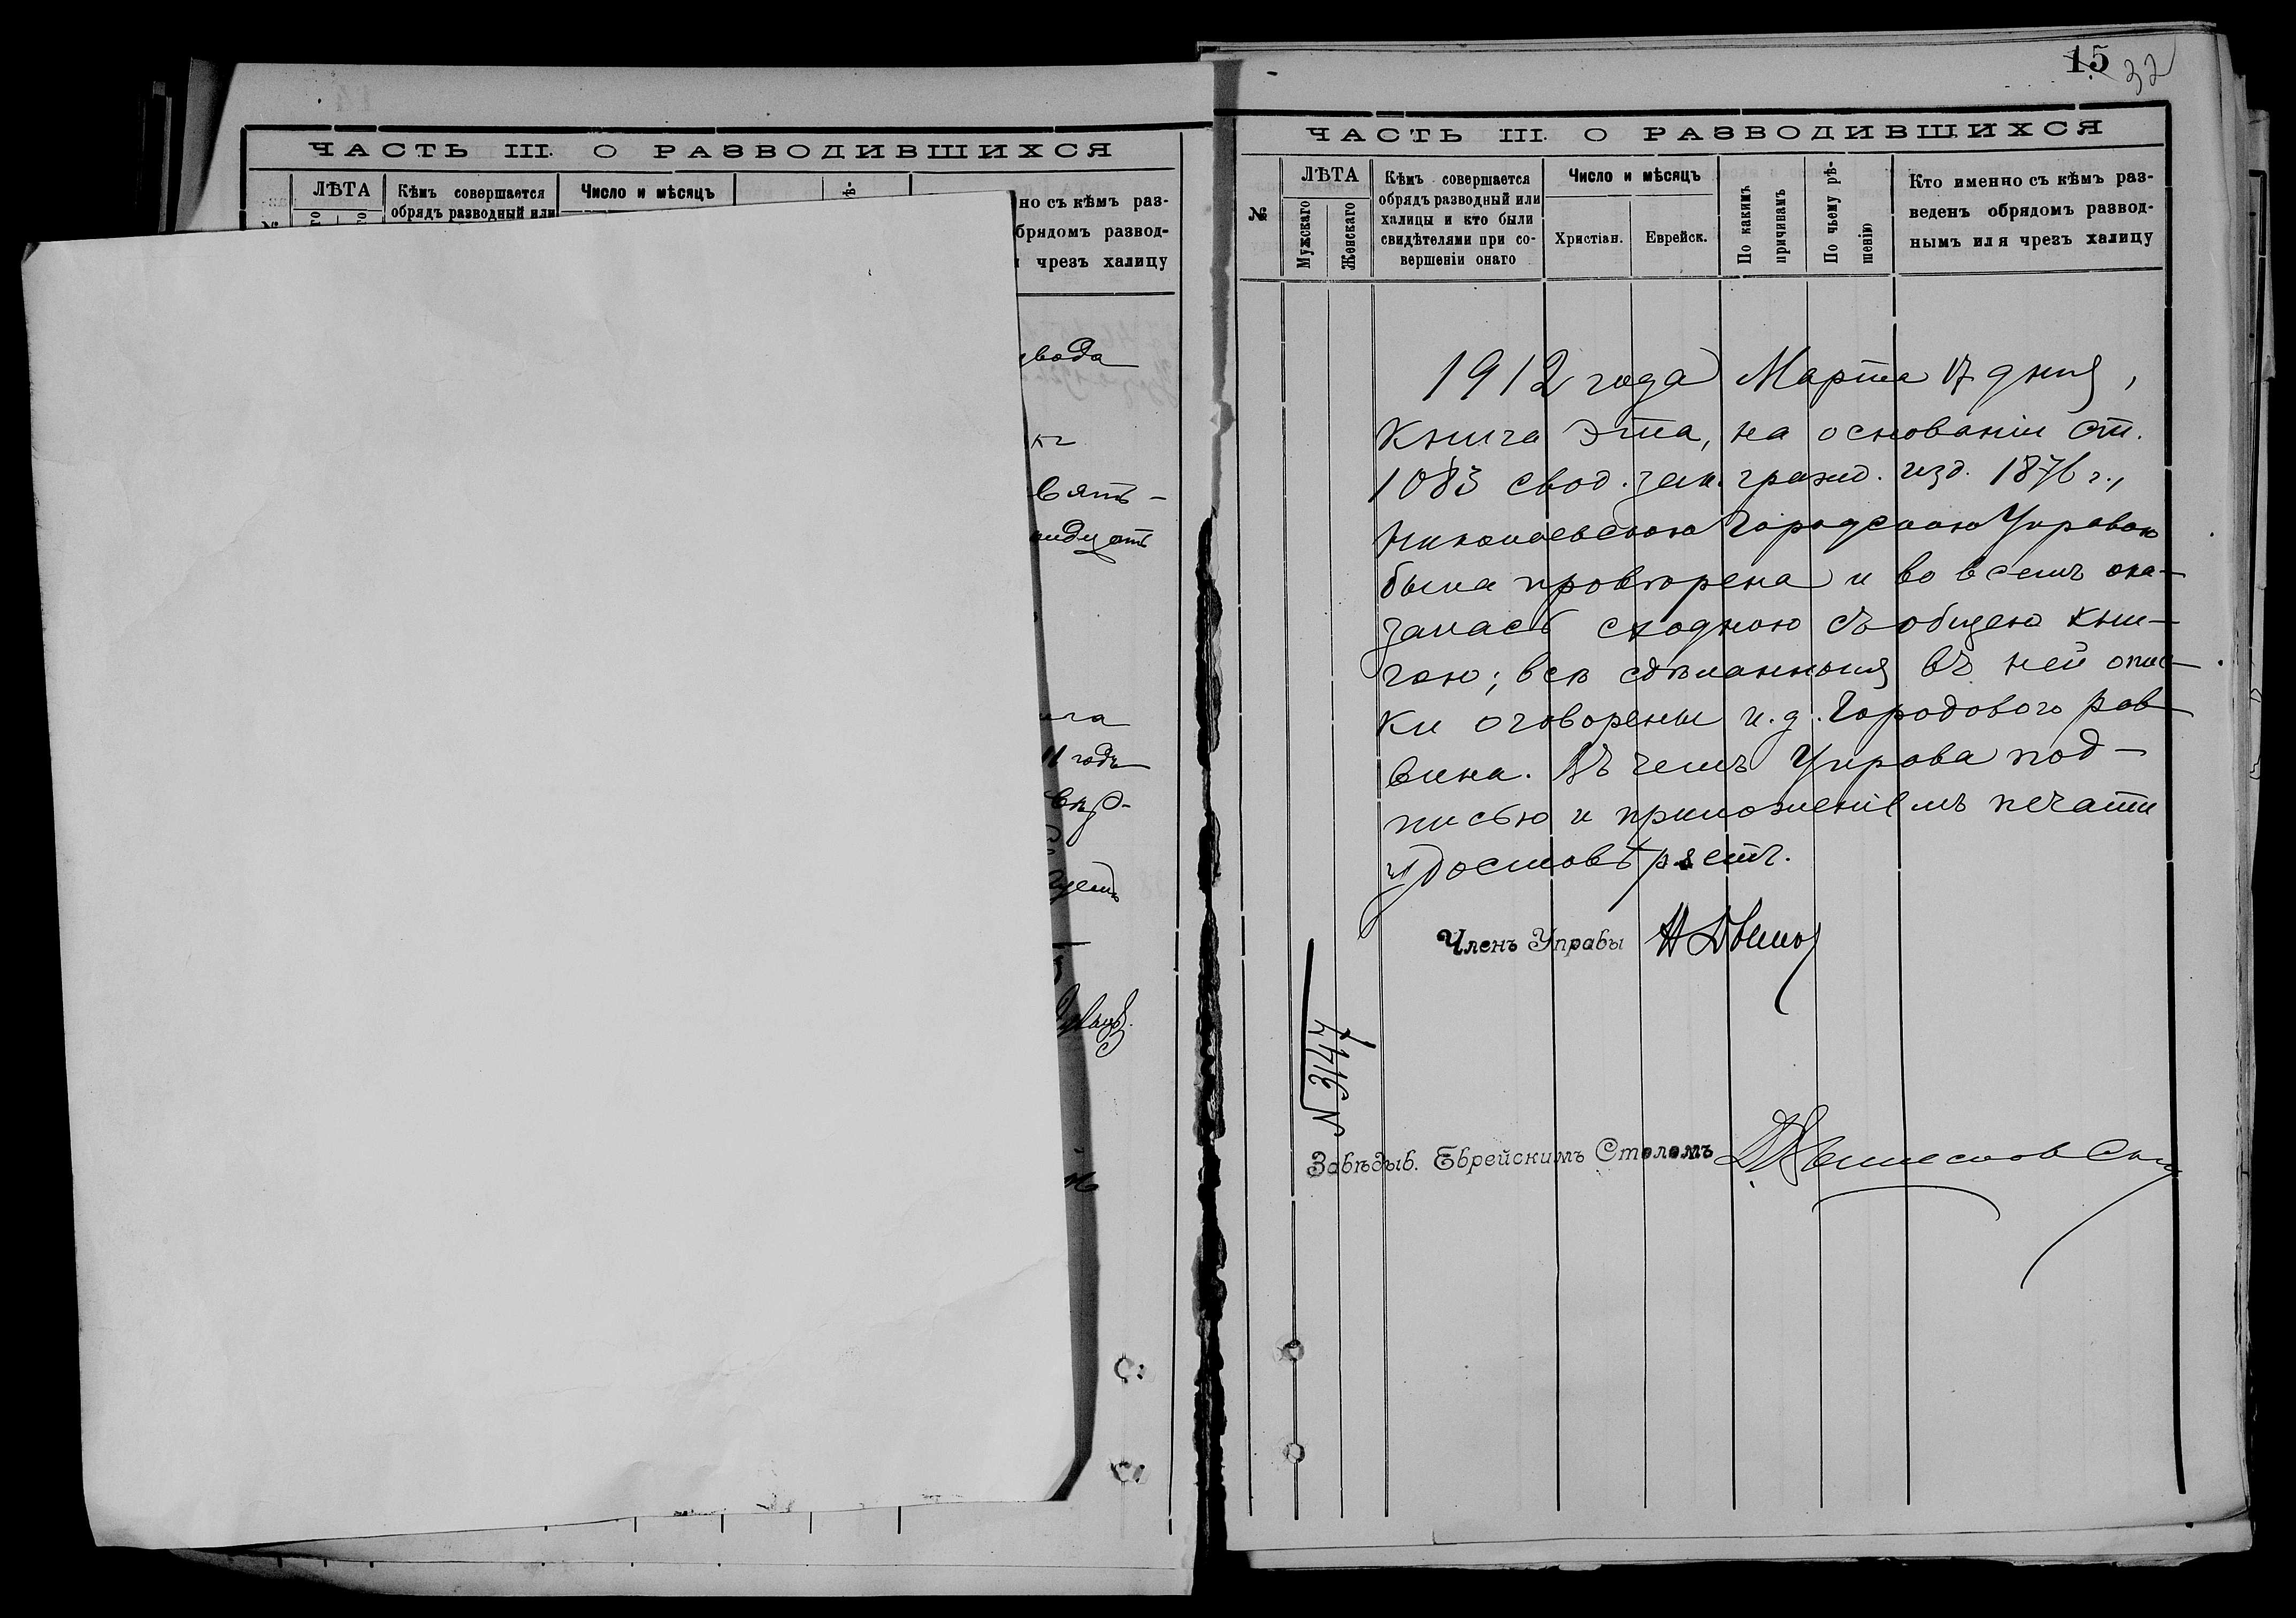 ЧАСТЬ III. О РАЗВОДИВШИХСЯ
ЛѢТА
Кѣмъ совершается
обрядъ разводный или
Число и мѣсяцъ
но съ кѣмъ раз-
брядомъ развод-
чрезъ халицу
вода
кг
вять-
надцать
11 годъ
15 32
ЧАСТЬ III. О РАЗВОДИВШИХСЯ
№
ЛѢТА
Мужскаго
Женскаго
Кѣмъ совершается
обрядъ разводный или
халицы и кто были
свидѣтелями при со-
вершеніи онаго
Число и мѣсяцъ
Христіан.
Еврейск.
По какимъ
причинамъ
По чьему рѣ-
шенію
Кто именно съ кѣмъ раз-
веденъ обрядомъ развод-
нымъ или чрезъ халицу
1912 года Марта 17 дня,
Книга эта, на основаніи ст.
1083 свод. зак. гражд. изд. 1876 г.,
Николаевскою Городскою Управою
была провѣрена и во всемъ ока-
залась сходною съ общею кни-
гою; всѣ сдѣланныя въ ней опис-
ки оговорены и. д. Городового рав-
вина. Въ чемъ Управа под-
писью и приложеніемъ печати
удостовѣряетъ.
Членъ Управы
№ 3147
Завѣдыв. Еврейскимъ Столомъ